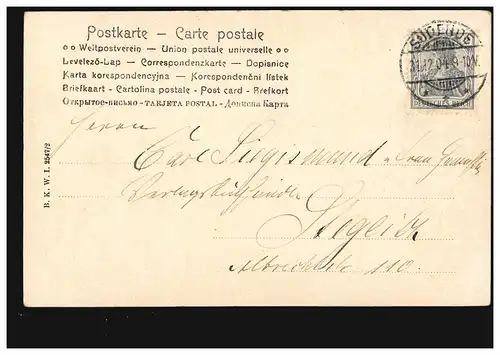 Postkarte – Carte postale
Weltpostverein – Union postale universelle
Levelező-Lap – Correspondenzkarte – Dopisnice
Karta korespondencyjna – Korespondenční lístek
Briefkaart - Cartolina postale - Post card - Brefkort
Открытое-письмо - TARJETA POSTAL - Дописна Карта
SÜDENDE
31.12.04. 9-10N.
Herrn
Carl Siegismund u. Frau
Verlagsbuchhändler
Steglitz
Albrechtstr. 110.
B. K. W. I. 2547/2